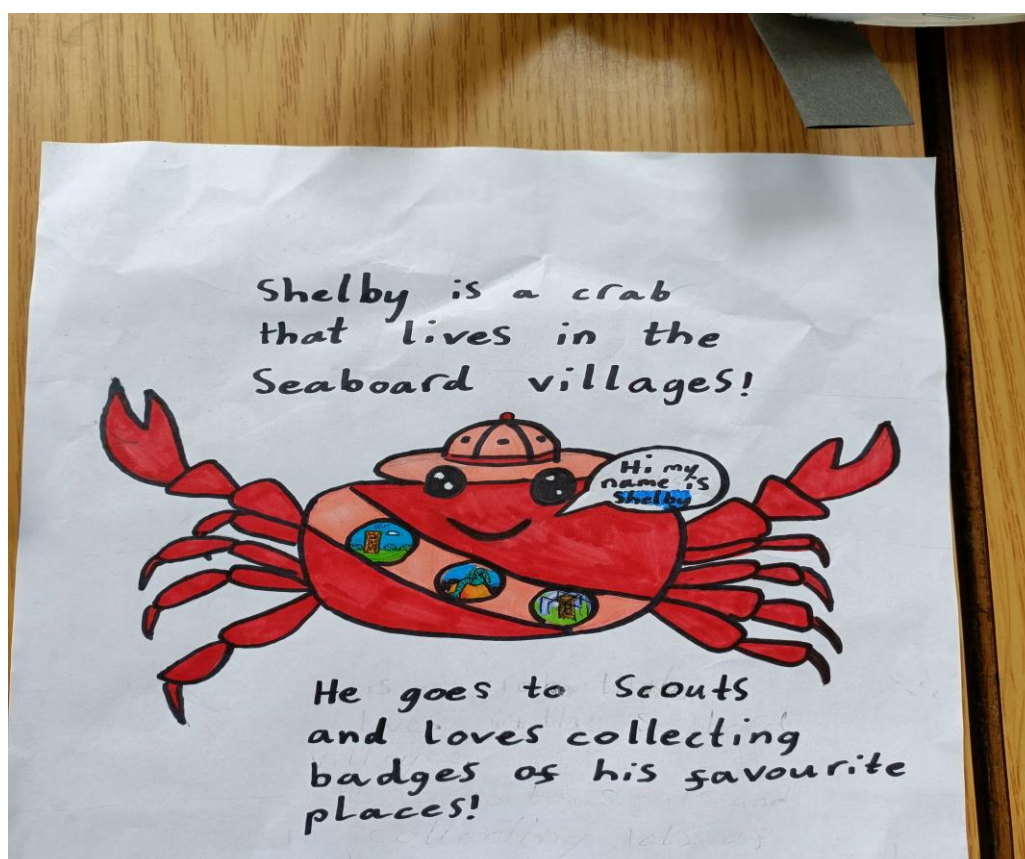 Shelby is a crab
that lives in the
Seaboard villages!
Hi my
name is
Shelby
He goes to Scouts
and loves collecting
badges of his favourite
places!